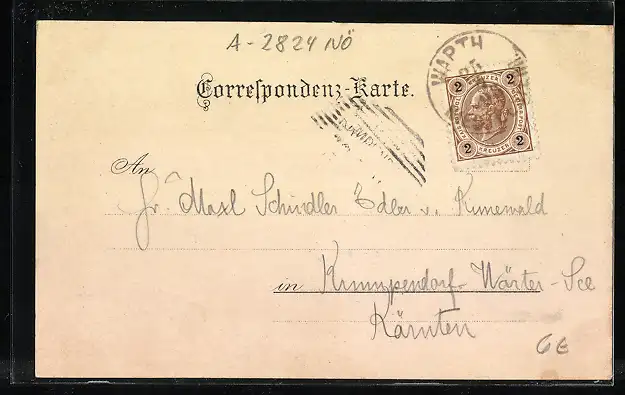 A-2824 NÖ
WARTH
Correspondenz-Karte.
2 KREUZER 2
2 KREUZER 2
An
Hr. Maxl Schindler Edler v. Kunewald
in Krumpendorf Wärter-See
Kärnten
6E